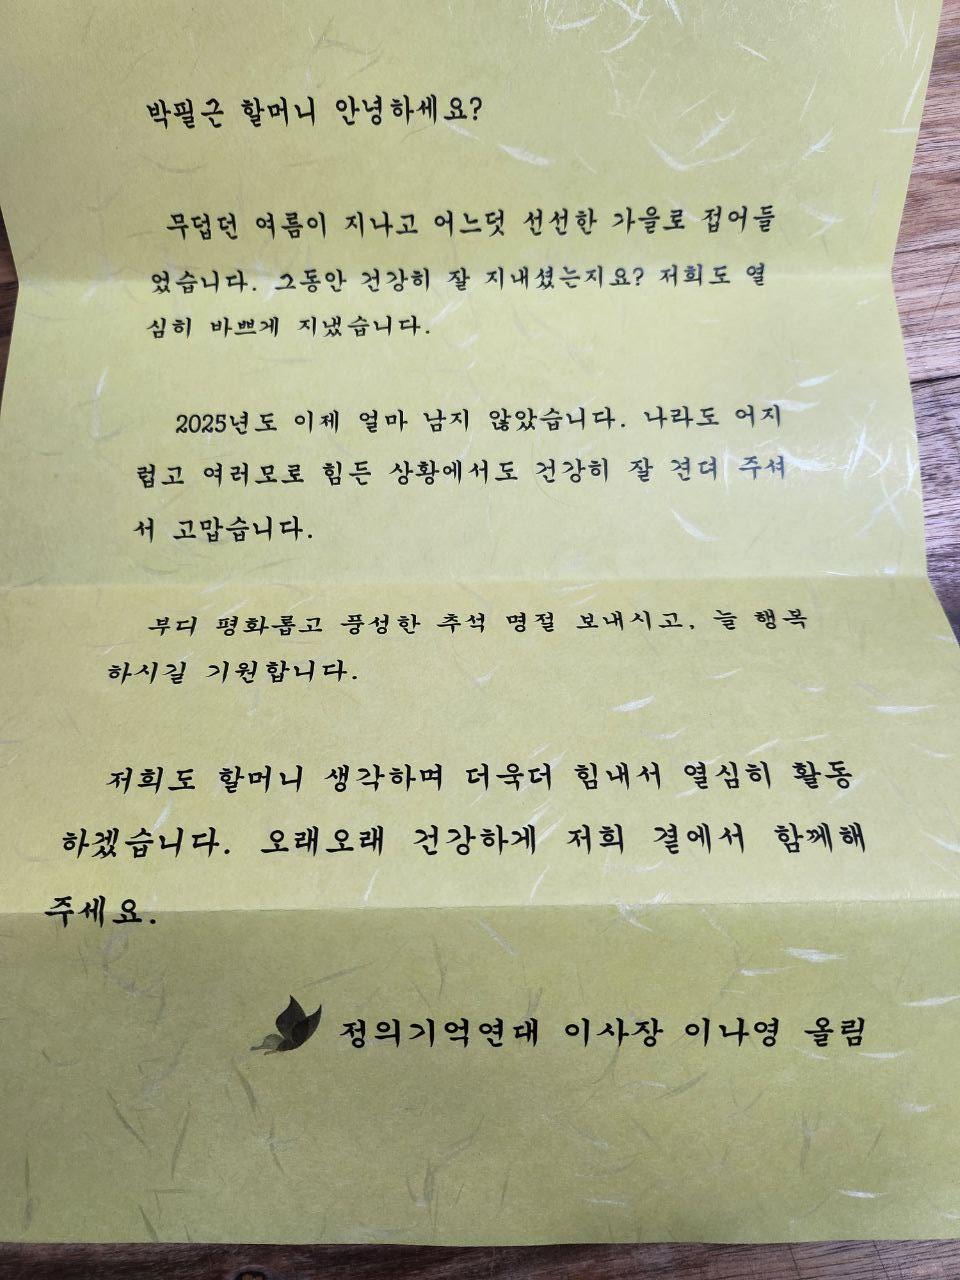 박필근 할머니 안녕하세요?
무덥던 여름이 지나고 어느덧 선선한 가을로 접어들
었습니다. 그동안 건강히 잘 지내셨는지요? 저희도 열
심히 바쁘게 지냈습니다.
2025년도 이제 얼마 남지 않았습니다. 나라도 어지
럽고 여러모로 힘든 상황에서도 건강히 잘 견뎌 주셔
서 고맙습니다.
부디 평화롭고 풍성한 추석 명절 보내시고, 늘 행복
하시길 기원합니다.
저희도 할머니 생각하며 더욱더 힘내서 열심히 활동
하겠습니다. 오래오래 건강하게 저희 곁에서 함께해
주세요.
정의기억연대 이사장 이나영 올림